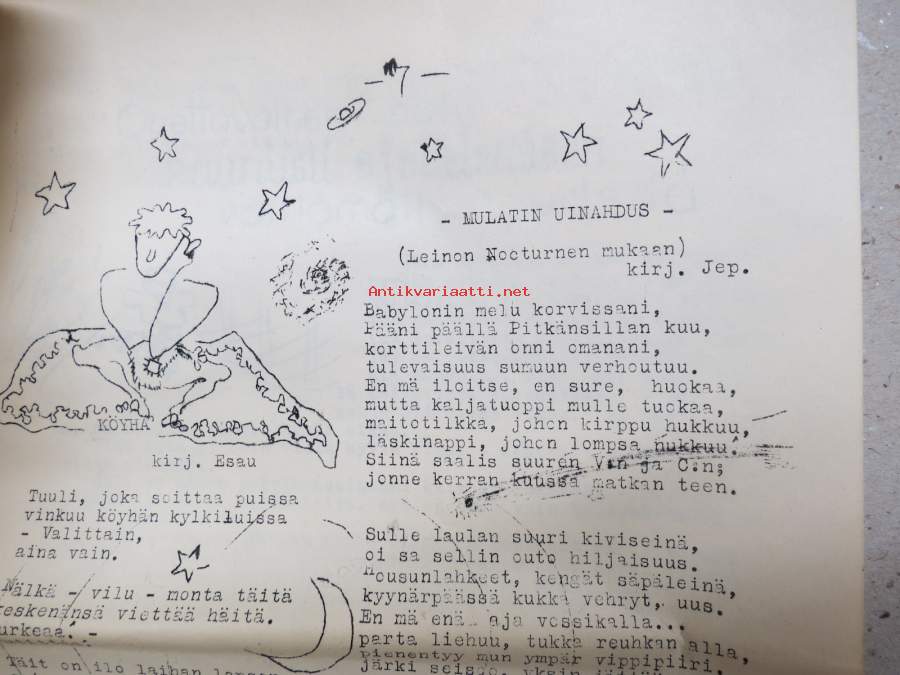 - MULATIN UINAHDUS -
(Leinon Nocturnen mukaan)
kirj. Jep.
Antikvariaatti.net
Babylonin melu korvissani,
Pääni päällä Pitkänsillan kuu,
korttileivän onni omanani,
tulevaisuus sumuun verhoutuu.
En mä iloitse, en sure, huokaa,
mutta kaljatuoppi mulle tuokaa,
maitotilkka, johon kirppu hukkuu,
läskinappi, johon lompsa nukkuu.
Siinä saalis suuren V:n ja C:n;
jonne kerran kuussa matkan teen.
Sulle laulan suuri kiviseinä,
oi sa sellin outo hiljaisuus.
Housunlahkeet, kengät säpäleinä,
kyynärpäässä kukka vehryt, uus.
En mä enä aja vossikalla...
parta liehuu, tukka reuhkan alla,
pienentyy mun ympär vippipiiri,
järki seisoo, yksin
KÖYHÄ
kirj. Esau
Tuuli, joka soittaa puissa
vinkuu köyhän kylkiluissa
- Valittain,
aina vain.
Nälkä - vilu - monta täitä
keskenänsä viettää häitä.
urkeaa. -
Täit on ilo laihan